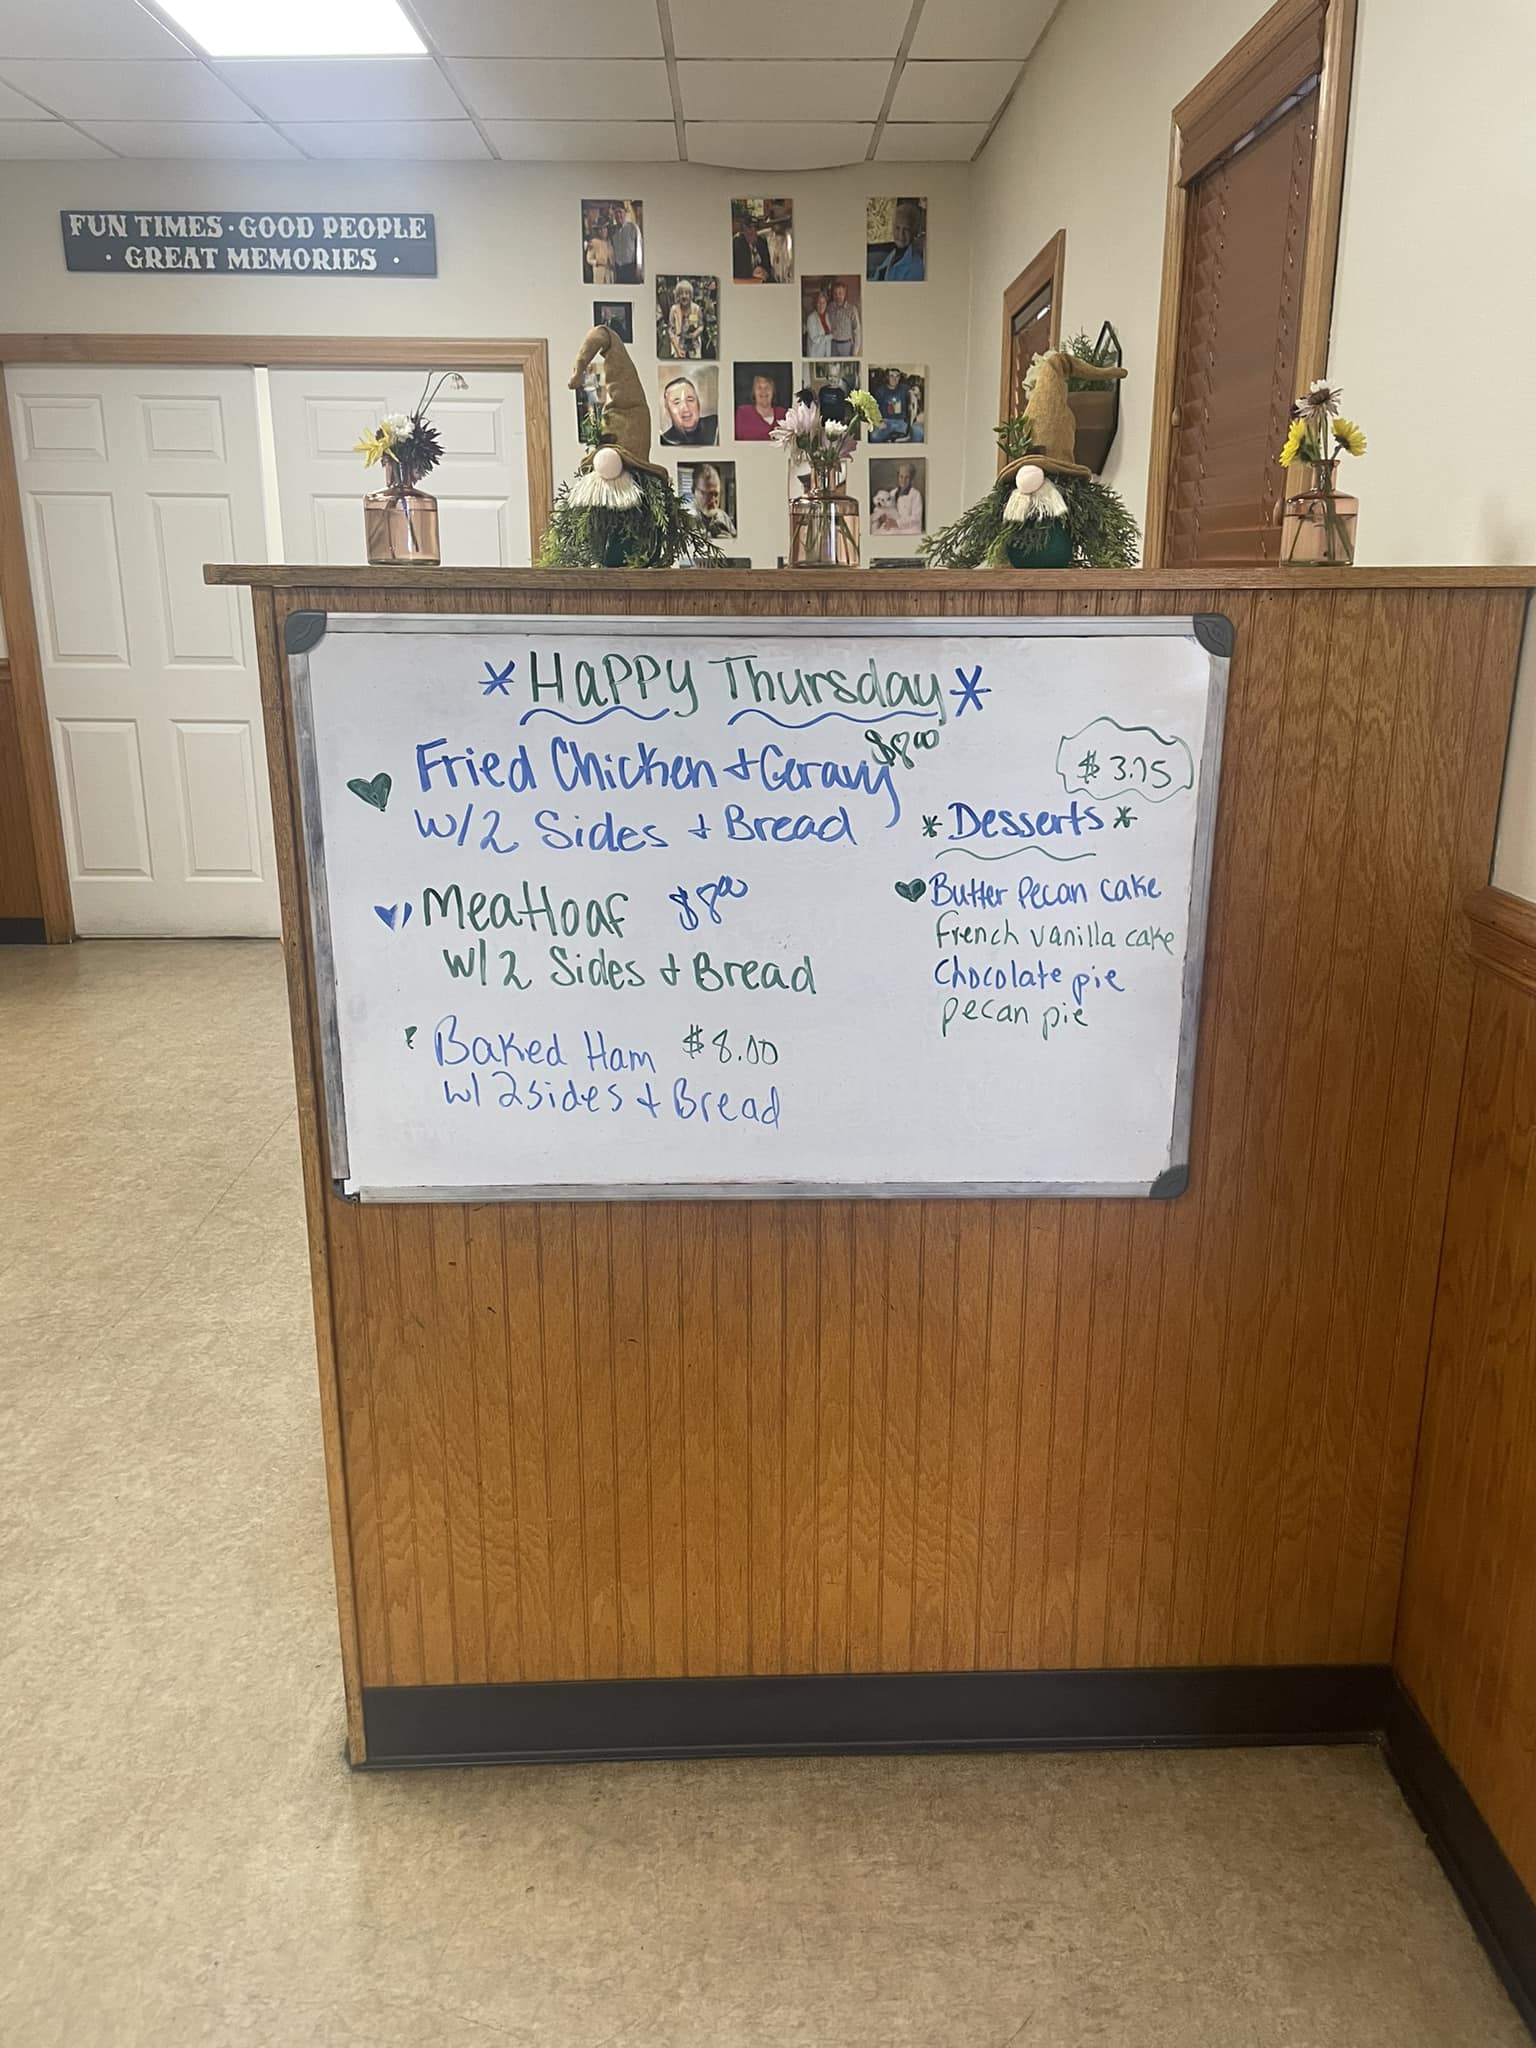 FUN TIMES · GOOD PEOPLE
· GREAT MEMORIES ·
* Happy Thursday *
Fried Chicken + Geravy $8.00
w/2 Sides + Bread
Meatloaf $8.00
w/2 Sides + Bread
Baked Ham $8.00
w/ 2 sides + Bread
$3.75
* Desserts *
Butter Pecan Cake
French vanilla cake
Chocolate pie
pecan pie